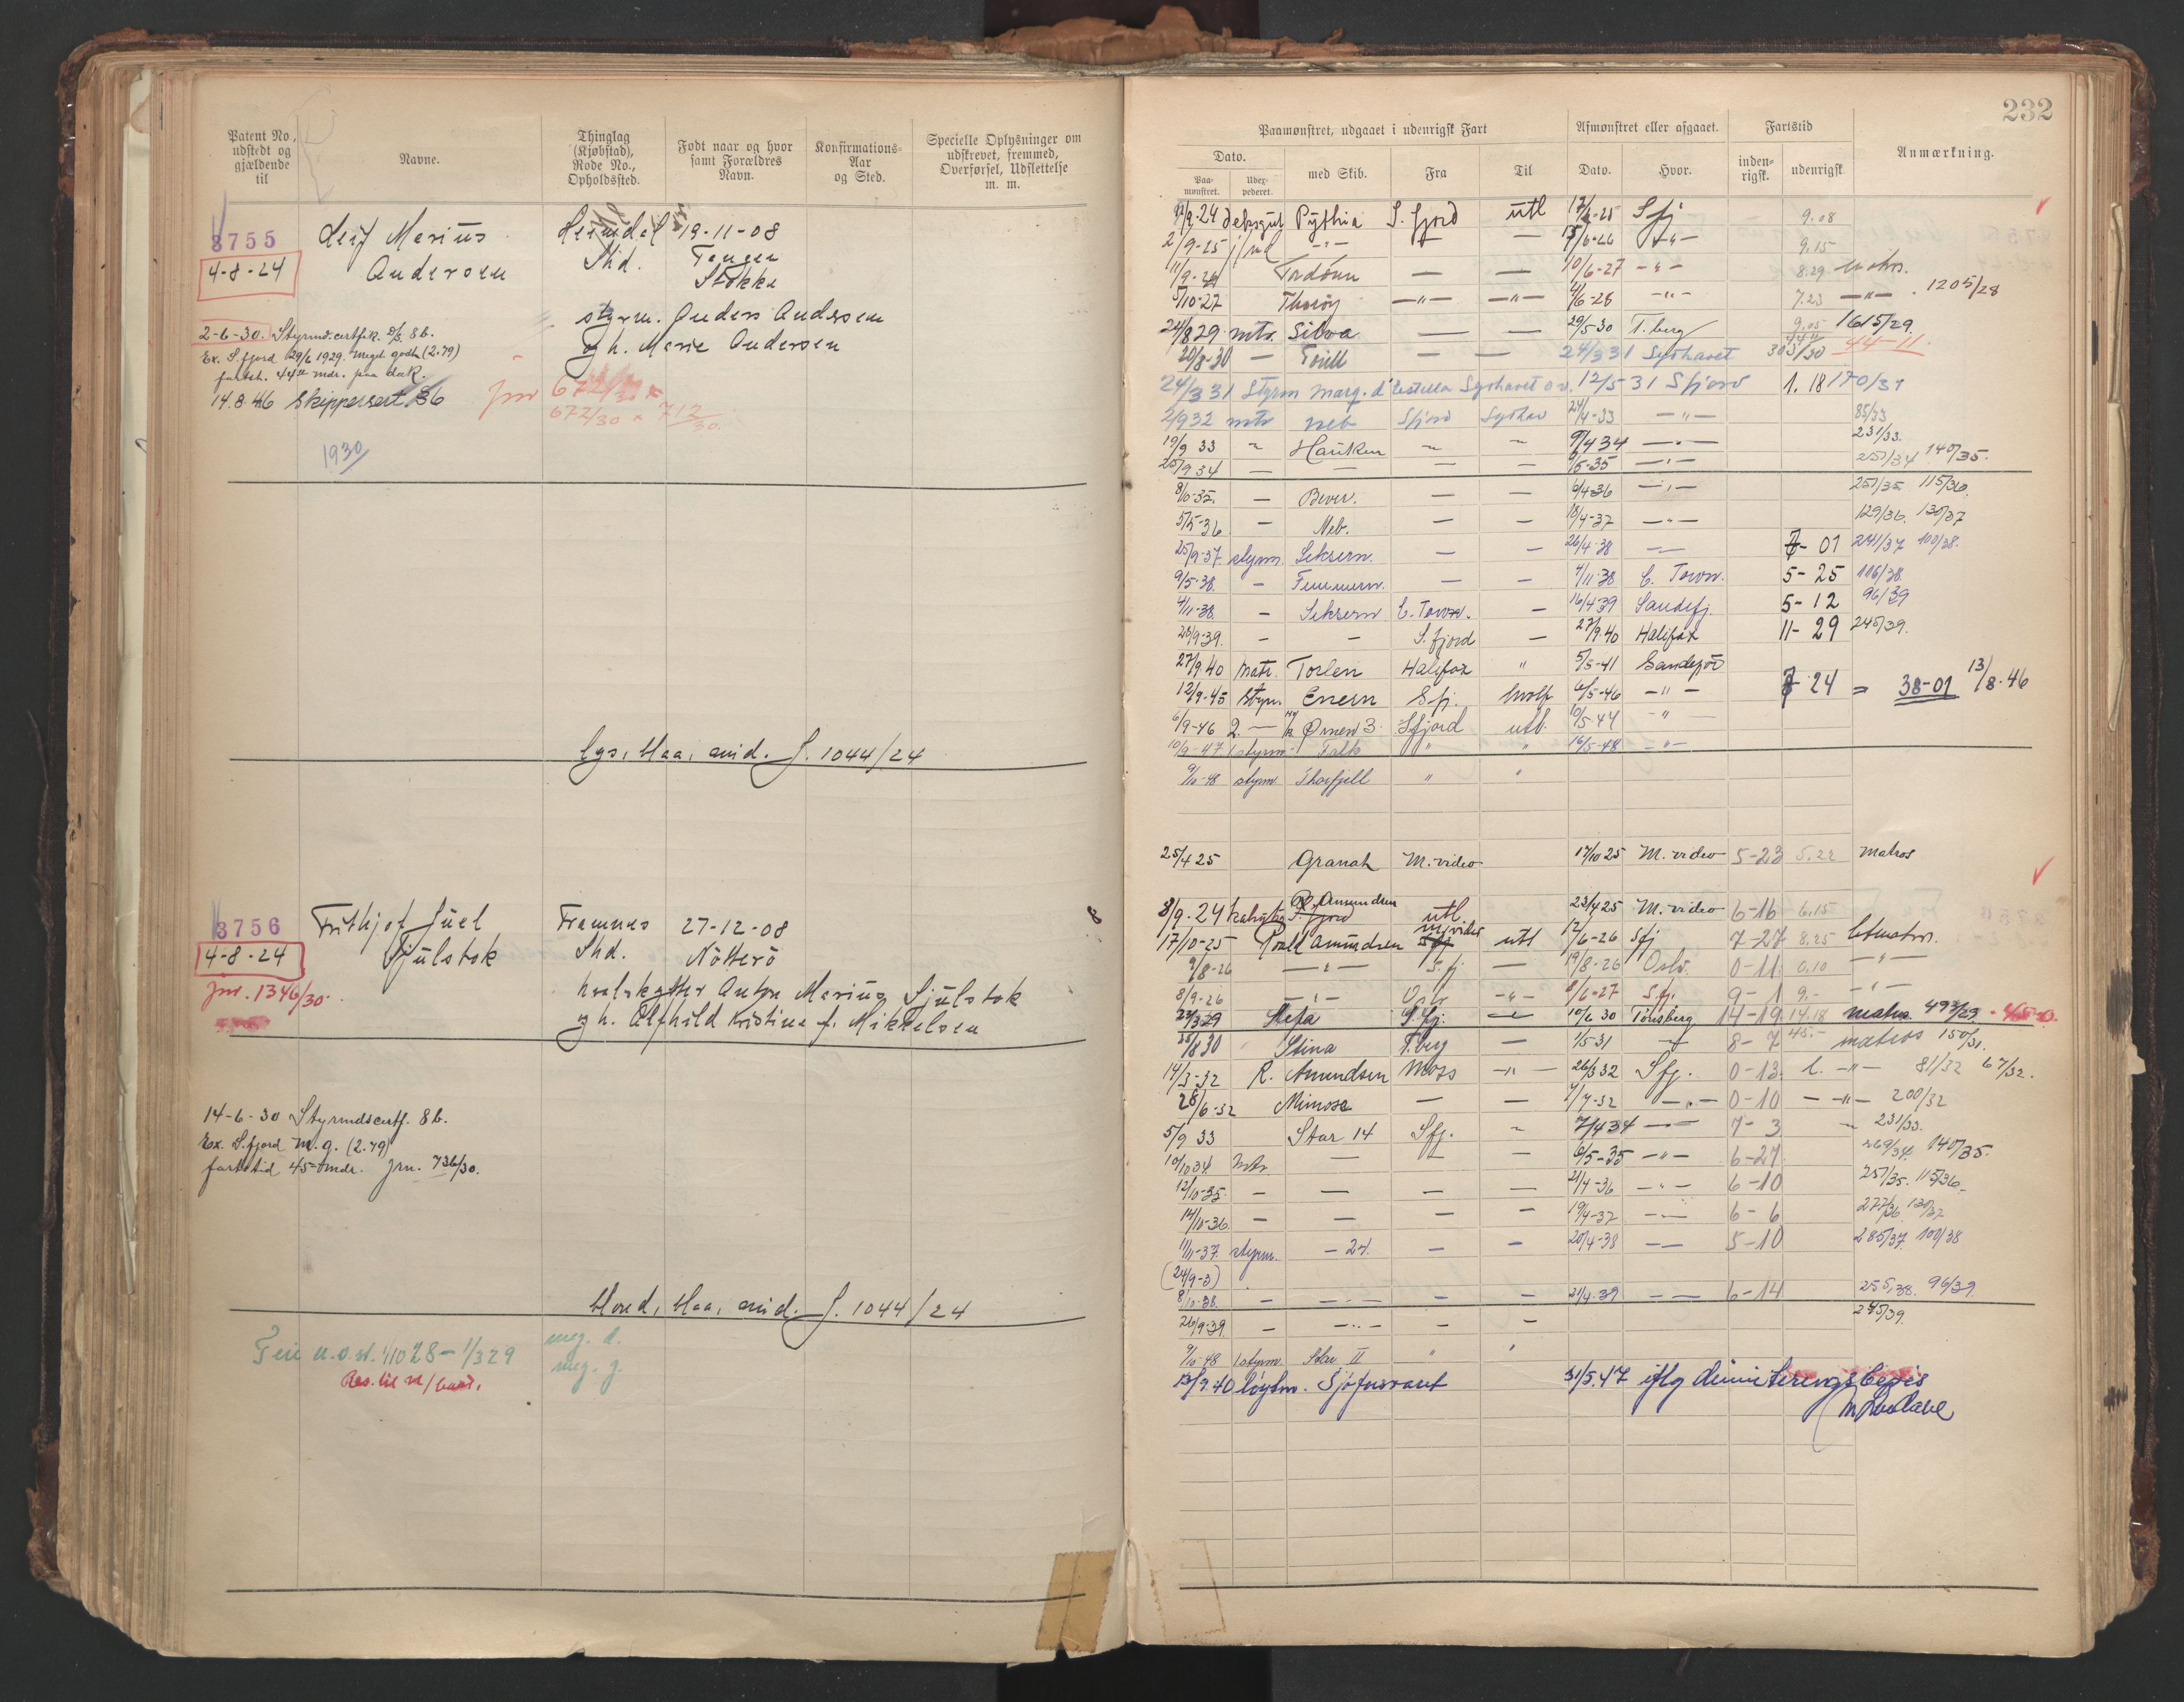 Patent No., udstedt og gjældende til
Navne.
Thinglag (Kjøbstad), Rode No., Opholdssted.
Født naar og hvor samt Forældres Navn.
Konfirmations-Aar og Sted.
Specielle Oplysninger om udskrevet, fremmed, Overførsel, Udslettelse m. m.
3755
4-8-24
Leif Marius
Andersen
Heimdal 19-11-08
Shd. Tangen
Stokke
styrm. Anders Andersen
og h. Marie Andersen
2-6-30. Styrmd.certfik. 8b.
Ex. S.fjord 29/6 1929. Megd. godh (2.79)
fartst. 44 11 mdr. paa dæk.
14.8.46 Skippersert 36
jnr 672/30 x
672/30 x 712/30.
1930
lys, blaa, mid. J. 1044/24
3756
4-8-24
jnr. 1346/30.
Frithjof Juel
Sjulstok
Framnes 27-12-08
Shd. Nötterö
hvalskytter Anton Marius Sjulstok
og h. Alfhild Kristine f. Mikkelsen
14-6-30 Styrmdscertf. 8b.
Ex. S.fjord M.g. (2.79)
fartstid 45 mdr. jrn. 736/30.
blond, blaa, mid. J. 1044/24
meg. d.
meg. g.
232
Paamønstret, udgaaet i udenrigsk Fart
Afmønstret eller afgaaet.
Fartstid
Anmærkning.
Dato.
Paa-mønstret.
Udex-pederet.
med Skib.
Fra
Til
Dato.
Hvor.
inden-rigsk.
udenrigsk
24 dæksgut Pythia S. fjord utl 25 Sfj 9.08
2/9-25 j/md -"- — — 26 -"- 9.15
11/9-26 — — 10/6-27 -"- 8.29
10-27 Thorøy -"- -"- 6-28 -"- 7.23 -"- 1205/28
24/8 29 mtr. Silva — — 29/5-30 T.berg 9.05 1615/29.
20/8-30 — — — 24/3 31 Sydhavet 303/30 44-11
24/3 31 Styrm Marq. d'Estella Sydhavet 12/5-31 Sfjord 1. 18 170/31
2/9 32 mtr Neb Sfjord Sydhav 24/4-33 -"- 85/33
19/9 33 Hauken 9/4 34 -"- 231/33.
25/9 34 — — — — 5-35 -"- 251/34 140/35.
8/10-35. — Bever. — — 6/4-36 -"- 251/35 115/36.
5/5-36 — Neb. — — 18/4-37 -"- 129/36. 130/37
25/9-37. styrm. Seksern. — — 26/4-38 — 7- 01 241/37 100/38.
9/5-38. — Femmern. — — 4/11-38 C. Town. 5- 25 116/38.
4/11-38. — Seksern C. Town. — 16/4-39 Sandefj. 5- 12 96/39
28/9-39. — — S. fjord — 27/9-40 Halifax 11- 29 245/39.
27/9 40 Matr. Torlen Halifax " 5/5-41
12/9-45 styrm. Enern Sfj. 6/5-46 -"- 24 = 38-01 13/8-46
6/9-46 2. — Ørnen 3. Sfjord utl. "
10/9-47 1 styrm. Falk " " 16/5-48 -"-
9/10-48 styrm. Thorfjell " "
25/4 25 Granat M.video 17/10 25 M. video 5-23 5.22 Matros
8/9-24 R. Amundsen S. fjord utl. 23/4 25 M. video 6-16 6.15
17/10-25 Roald Amundsen M.video utl 12/6-26 Sfj 7-27 8.25
9/8-26 -"- S. fj. — 19/8-26 Oslo. 0-11 0.10 -"-
8/9-26 -"- Oslo -"- 8/6-27 S.fj. 9-1 9.- -"-
23/3 29 Stefa S. fj. 10/6 30 Tönsberg 14-19 14.18 matr. 493/29 - 45-0.
25/8 30 Stina T.berg — 1/5-31 8-7 45.- matros 150/31.
14/3-32 R. Amundsen Moss -"- 26/3 32 Sfj. 0-13. l. -"- 81/32 67/32.
28/6-32 Mimosa — — 7-32 -"- 0-10 -"- 200/32
5/9 33 Star 14 Sfj. 7/4 34 7-3 231/33.
10/10 34. Mtr. — — — 6/5-35 -"- 6-27 269/34 140/35.
12/10-35. — — — — 21/4-36 -"- 6-10 251/35. 115/36.
14/10-36. — — — — 19/4-37 — 6-6 277/36 130/37
11/11-37. styrm. -24. — — 20/4-38 — 5-10 285/37. 100/38
(24/9-3)
8/10-38. — — — — 21/4-39 — 6-14 255/38. 96/39.
26/9-39. — — — — 245/39.
9/10-48 1 styrm. Star II " "
13/9.40 løytm. Sjøforsvaret 31/5.47 iflg dimiteringsbevis